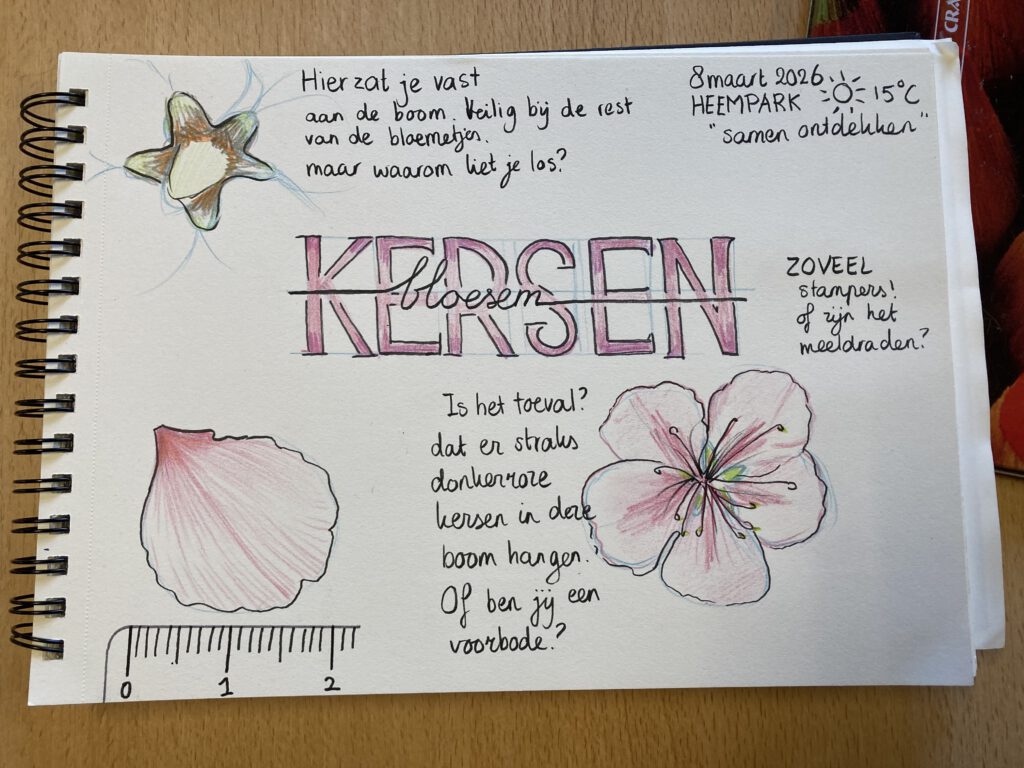 Hier zat je vast
aan de boom. Veilig bij de rest
van de bloemetjes.
maar waarom liet je los?
8 maart 2026
HEEMPARK 15°C
"samen ontdekken"
KERSEN
bloesem
ZOVEEL
stampers!
of zijn het
meeldraden?
Is het toeval?
dat er straks
donkerroze
kersen in deze
boom hangen.
Of ben jij een
voorbode?
0 1 2
CRA